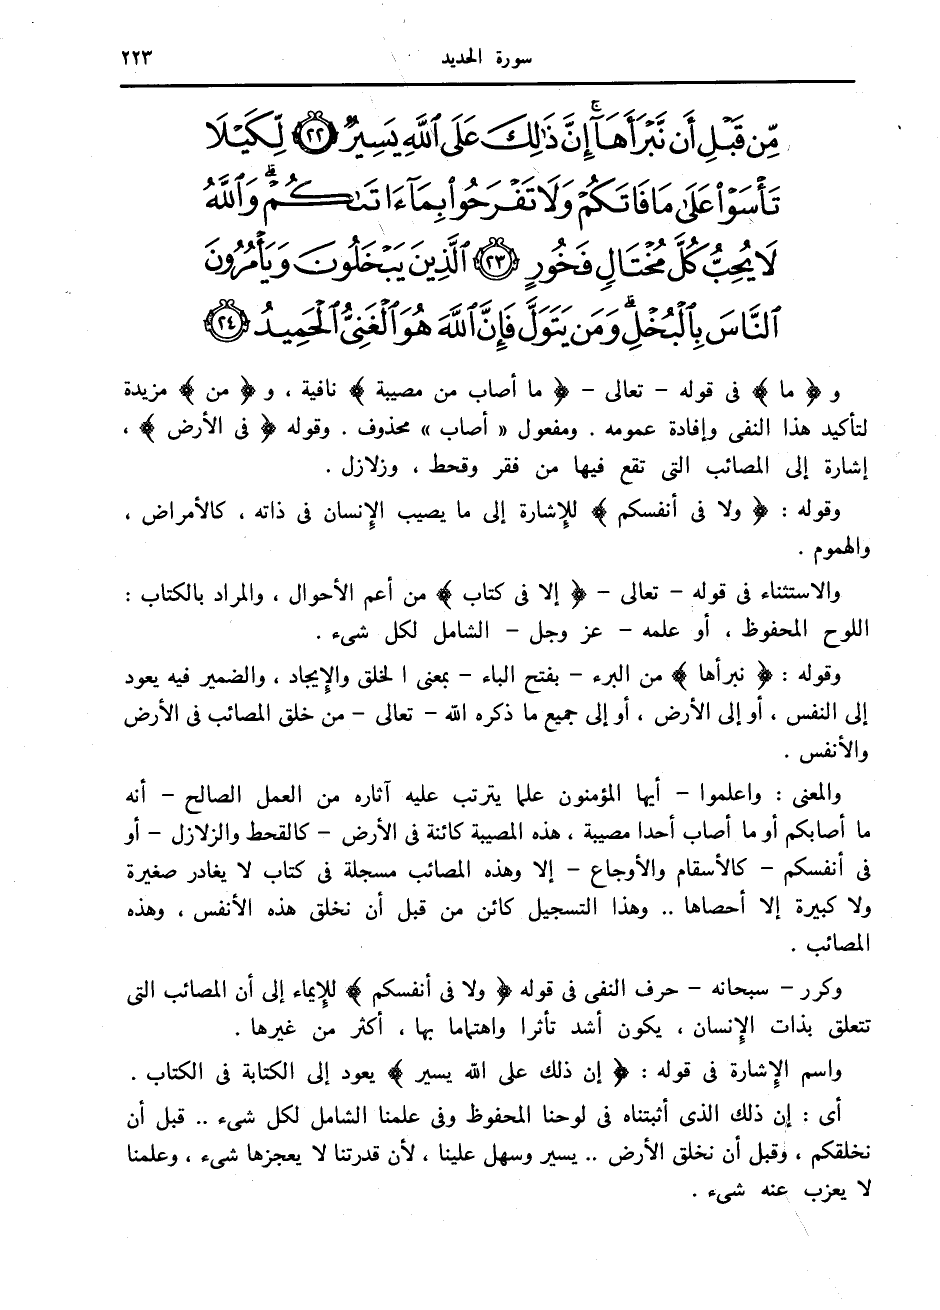 سورة الحديد ٢٢٣
مِّن قَبْلِ أَن نَّبْرَأَهَآ ۚ إِنَّ ذَٰلِكَ عَلَى ٱللَّهِ يَسِيرٌ ﴿٢٢﴾ لِّكَيْلَا
تَأْسَوْا۟ عَلَىٰ مَا فَاتَكُمْ وَلَا تَفْرَحُوا۟ بِمَآ ءَاتَىٰكُمْ ۗ وَٱللَّهُ
لَا يُحِبُّ كُلَّ مُخْتَالٍ فَخُورٍ ﴿٢٣﴾ ٱلَّذِينَ يَبْخَلُونَ وَيَأْمُرُونَ
ٱلنَّاسَ بِٱلْبُخْلِ ۗ وَمَن يَتَوَلَّ فَإِنَّ ٱللَّهَ هُوَ ٱلْغَنِىُّ ٱلْحَمِيدُ ﴿٢٤﴾
و ﴿ ما ﴾ فى قوله – تعالى – ﴿ ما أصاب من مصيبة ﴾ نافية ، و ﴿ من ﴾ مزيدة
لتأكيد هذا النفى وإفادة عمومه . ومفعول « أصاب » محذوف . وقوله ﴿ فى الأرض ﴾ ،
إشارة إلى المصائب التى تقع فيها من فقر وقحط ، وزلازل .
وقوله : ﴿ ولا فى أنفسكم ﴾ للإشارة إلى ما يصيب الإنسان فى ذاته ، كالأمراض ،
والهموم .
والاستثناء فى قوله – تعالى – ﴿ إلا فى كتاب ﴾ من أعم الأحوال ، والمراد بالكتاب :
اللوح المحفوظ ، أو علمه – عز وجل – الشامل لكل شىء .
وقوله : ﴿ نبرأها ﴾ من البرء – بفتح الباء – بمعنى ا لخلق والإيجاد ، والضمير فيه يعود
إلى النفس ، أو إلى الأرض ، أو إلى جميع ما ذكره الله – تعالى – من خلق المصائب فى الأرض
والأنفس .
والمعنى : واعلموا – أيها المؤمنون علما يترتب عليه آثاره من العمل الصالح – أنه
ما أصابكم أو ما أصاب أحدا مصيبة ، هذه المصيبة كائنة فى الأرض – كالقحط والزلازل – أو
فى أنفسكم – كالأسقام والأوجاع – إلا وهذه المصائب مسجلة فى كتاب لا يغادر صغيرة
ولا كبيرة إلا أحصاها .. وهذا التسجيل كائن من قبل أن نخلق هذه الأنفس ، وهذه
المصائب .
وكرر – سبحانه – حرف النفى فى قوله ﴿ ولا فى أنفسكم ﴾ للإيماء إلى أن المصائب التى
تتعلق بذات الإنسان ، يكون أشد تأثرا واهتماما بها ، أكثر من غيرها .
واسم الإشارة فى قوله : ﴿ إن ذلك على الله يسير ﴾ يعود إلى الكتابة فى الكتاب .
أى : إن ذلك الذى أثبتناه فى لوحنا المحفوظ وفى علمنا الشامل لكل شىء .. قبل أن
نخلقكم ، وقبل أن نخلق الأرض .. يسير وسهل علينا ، لأن قدرتنا لا يعجزها شىء ، وعلمنا
لا يعزب عنه شىء .